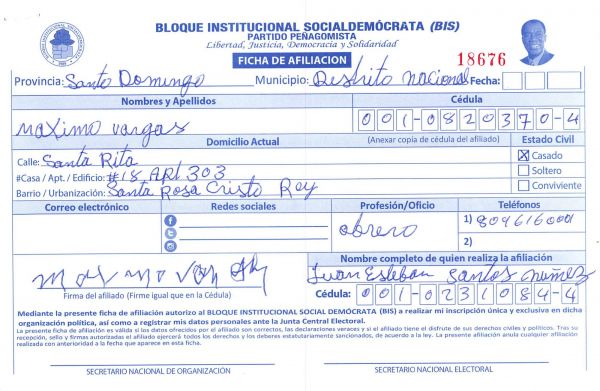 BLOQUE INSTITUCIONAL SOCIALDEMÓCRATA (BIS)
PARTIDO PEÑAGOMISTA
Libertad, Justicia, Democracia y Solidaridad
FICHA DE AFILIACION 18676
Provincia: Santo Domingo Municipio: Destrito nacional Fecha:
Nombres y Apellidos Cédula
maximo vargas 001-0820370-4
Domicilio Actual (Anexar copia de cédula del afiliado) Estado Civil
Calle: Santa Rita X Casado
#Casa / Apt. / Edificio: #18 APt 303 Soltero
Barrio / Urbanización: Santa Rosa Cristo Rey Conviviente
Correo electrónico Redes sociales Profesión/Oficio Teléfonos
obrero 1) 8096160001
2)
Nombre completo de quien realiza la afiliación
Juan Esteban Santos Nuñez
Firma del afiliado (Firme igual que en la Cédula) Cédula: 001-0231084-4
Mediante la presente ficha de afiliación autorizo al BLOQUE INSTITUCIONAL SOCIAL DEMÓCRATA (BIS) a realizar mi inscripción única y exclusiva en dicha
organización política, así como a registrar mis datos personales ante la Junta Central Electoral.
La presente ficha de afiliación es valida si los datos ofrecidos por el afiliado son correctos, las declaraciones veraces y si el afiliado tiene el disfrute de sus derechos civiles y políticos. Tras su
recepción, sello y firmas autorizadas el afiliado ejercerá todos los derechos y los deberes estatutariamente sancionados, de acuerdo a la ley. La presente afiliación anula cualquier afiliación
realizada con anterioridad a la fecha que aparece en esta ficha.
SECRETARIO NACIONAL DE ORGANIZACIÓN SECRETARIO NACIONAL ELECTORAL